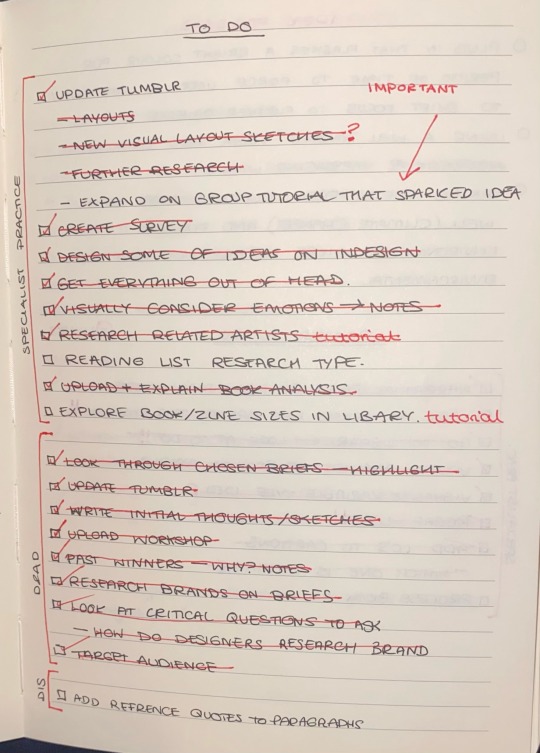 TO DO
UPDATE TUMBLR
IMPORTANT
- LAYOUTS
- NEW VISUAL LAYOUT SKETCHES ?
- FURTHER RESEARCH
- EXPAND ON GROUP TUTORIAL THAT SPARKED IDEA
SPECIALIST PRACTICE
CREATE SURVEY
DESIGN SOME OF IDEAS ON INDESIGN
GET EVERYTHING OUT OF HEAD.
VISUALLY CONSIDER EMOTIONS → NOTES
RESEARCH RELATED ARTISTS tutorial
READING LIST RESEARCH TYPE.
UPLOAD + EXPLAIN BOOK ANALYSIS.
EXPLORE BOOK/ZINE SIZES IN LIBARY. tutorial
LOOK THROUGH CHOSEN BRIEFS - HIGHLIGHT
UPDATE TUMBLR
WRITE INITIAL THOUGHTS/SKETCHES
UPLOAD WORKSHOP
PAST WINNERS - WHY? NOTES
DPAD
RESEARCH BRANDS ON BRIEFS
LOOK AT CRITICAL QUESTIONS TO ASK
- HOW DO DESIGNERS RESEARCH BRAND
TARGET AUDIENCE
DIS
ADD REFRENCE QUOTES TO PARAGRAPHS